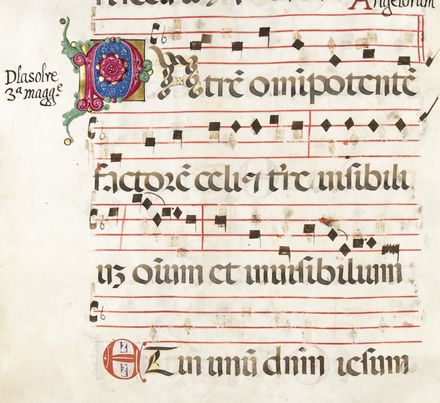 Angelorum
Dlasolre
3ª magg.e
Patrē omīpotentē
factorē celi ⁊ tr̄e uisibili
uꝫ oīum et inuisibilium
Et in unū dn̄m iesum